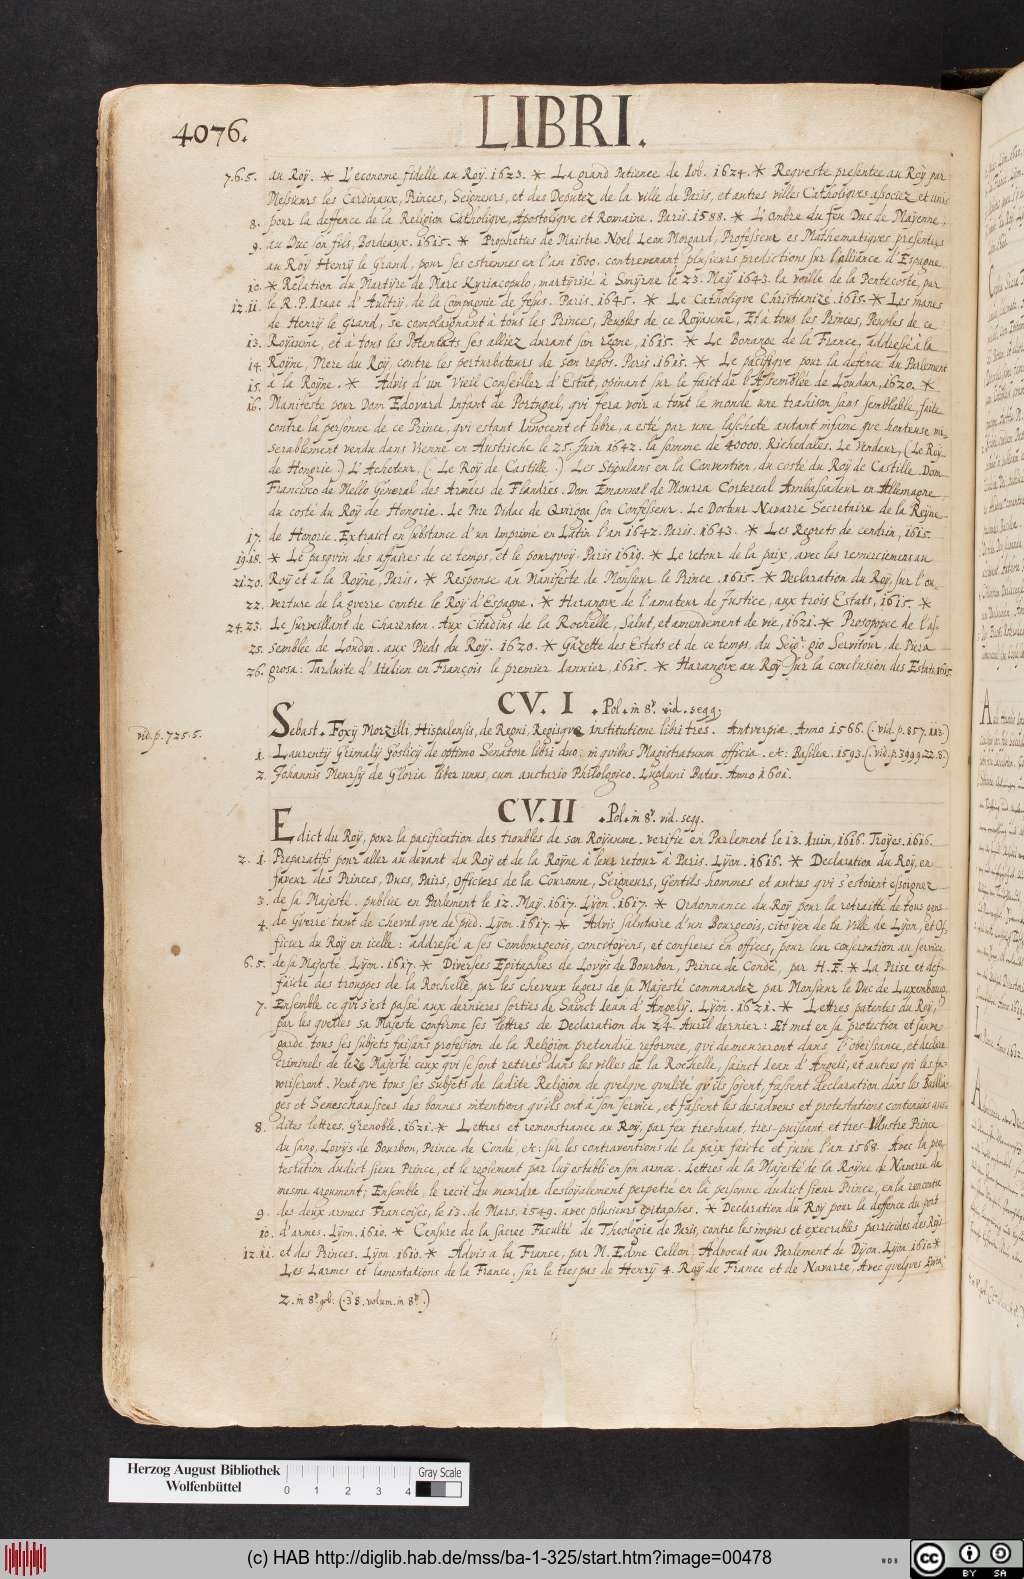 4076.
LIBRI.
7.6.5. au Roÿ. * L'econome fidelle au Roÿ. 1623. * La grand Patience de Iob. 1624. * Requeste presentee au Roÿ par
Messieurs les Cardinaux, Princes, Seigneurs, et des Deputez de la ville de Paris, et autres villes Catholiques associez et unis
8. pour la deffence de la Religion Catholique, Apostolique et Romaine. Paris. 1588. * L'Ombre du feu Duc de Maÿenne,
9. au Duc son fils, Bordeaux. 1615. * Propheties de Maistre Noel Leon Morgard, Professeur es Mathematiques presentees
au Roÿ Henrÿ le Grand, pour ses estrennes en l'an 1600. contrevenant plusieurs predictions sur l'alliance d'Espagne
10. * Relation du Martÿre de Marc Kyriacopulo, martÿrisé à Smÿrne le 23. Maÿ 1643. la voille de la Pentecoste, par
12.11. le R. P. Isaac d'Aultrÿ, de la Compagnie de Jesus. Paris. 1645. * Le Catholique Christianize. 1615. * Les manes
de Henrÿ le Grand, se complaignant à tous les Princes, Peuples de ce Roÿaume, Et à tous les Princes, Peuples de ce
13. Roÿaume, et à tous les Potentats ses alliez durant son regne, 1615. * Le Bonance de la France, addressé à la
14. Roÿne, Mere du Roÿ, contre les perturbateurs de son repos. Paris. 1615. * Le pacifique pour la defence du Parlement
15. à la Roÿne. * Advis d'un Vieil Conseiller d'Estat, opinant sur le faict de l'Assemblée de Loudun, 1620. *
16. Manifeste pour Dom Edovard Infant de Portugal, qui fera voir a tout le monde une trahison sans semblable, faite
contre la personne de ce Prince, qui estant Innocent et libre, a esté par une lascheté autant infame que honteuse mi-
serablement vendu dans Vienne en Austriche le 25. Juin 1642. la somme de 40000. Richedales. Le Vendeur, (Le Roÿ
de Hongrie.) L'Acheteur, (. Le Roÿ de Castille.) Les Stipulans en la Convention, du costé du Roÿ de Castille. Dom
Francisco de Mello General des Armées de Flandres. Dom Emanuel de Moura Cortereal Ambassadeur en Allemagne
du costé du Roÿ de Hongrie. Le Pere Didac de Quiroga son Confesseur. Le Docteur Navarre Secretaire de la Reÿne
17. de Hongrie. Extraict en substance d'un Imprimé en Latin l'an 1642. Paris. 1643. * Les Regrets de cendrin, 1615.
19.18. * Le pasquin des affaires de ce temps, et le pourquoÿ. Paris 1619. * Le retour de la paix, avec les remerciemens au
21.20. Roÿ et à la Roÿne, Paris. * Response au Manifeste de Monsieur le Prince. 1615. * Declaration du Roÿ, sur l'ou-
22. verture de la guerre contre le Roÿ d'Espagne. * Harangue de l'amateur de Justice, aux trois Estats, 1615. *
24.23. Le Surveillant de Charenton. Aux Citadins de la Rochelle, Salut, et amendement de vie, 1621. * Prosopopee de l'as-
25. semblee de Londun. aux Pieds du Roÿ. 1620. * Gazette des Estats et de ce temps, du Seigr. gio Servitour, de Piera
26. grosa: Tarduite d'Italien en François le premier Ianuier, 1615. * Harangue au Roÿ sur la conclusion des Estats, 1615.
CV. I . Pol. in 8°. vid. seqq.
vid. p. 725.5. Sebast. Foxÿ Morzilli Hispalensis, de Regni, Regisque institutione libri tres. Antverpiæ. Anno 1566. (.vid. p. 857. 112)
1. Laurentÿ Grimalÿ Goslicÿ de optimo Senatore libri duo, in quibus Magistratuum officia. etc. Basileæ. 1593. (.vid. p. 3999. 22. 8.)
2. Johannis Meursÿ de Gloria liber unus, cum auctario Philologico. Lugduni Batav. Anno 1601.
CV. II . Pol. in 8°. vid. seqq.
Edict du Roÿ, pour la pacification des troubles de son Roÿaume. verifié en Parlement le 13. Iuin, 1616. Troÿes. 1616.
2. 1. Preparatifs pour aller au devant du Roÿ et de la Roÿne à leur retour à Paris. Lÿon. 1616. * Declaration du Roÿ, en
faveur des Princes, Ducs, Pairs, Officiers de la Couronne, Seigneurs, Gentils-hommes et autres qui s'estoient esloignez
3. de sa Majesté. publiee en Parlement le 12. Maÿ. 1617. Lÿon. 1617. * Ordonnance du Roÿ pour la retraitte de tous gens
4. de Guerre tant de cheval que de pied. Lÿon. 1617. * Advis salutaire d'un Bourgeois, citoÿen de la Ville de Lÿon, et Of-
ficier du Roÿ en icelle: addressé a ses Combourgeois, concitoÿens, et confreres en offices, pour leur conservation au service
6.5. de sa Majesté Lÿon. 1617. * Diversees Epitaphes de Lovÿs de Bourbon, Prince de Condé, par H. E. * La Prise et def-
faicte des trouppes de la Rochelle, par les chevaux legers de sa Majesté commandez par Monsieur le Duc de Luxembourg.
7. Ensemble ce qui s'est passé aux dernieres sorties de Sainct Iean d'Angelÿ. Lÿon. 1621. * Lettres patentes du Roÿ,
par les quelles sa Majesté confirme ses lettres de Declaration du 24. Auril dernier: Et met en sa protection et sauve
garde tous ses subjets faisans profession de la Religion pretendüe reformee, qui demeureront dans l'obeissance, et declare
criminels de lèze Majesté ceux qui se sont retirés dans les villes de la Rochelle, sainct Iean d'Angeli, et autres qui les fa-
voriseront. Veut que tous ses subjets de la dite Religion de quelque qualité qu'ils soÿent, fassent declaration dans les Baillia-
ges et Seneschaussees des bonnes intentions qu'ils ont à son service, et fassent les desadveus et protestations contenues aus-
8. dites lettres. Grenoble. 1621. * Lettres et remonstrance au Roÿ, par feu tres-haut, tres-puissant, et tres-Illustre Prince
du sang, Lovÿs de Bourbon, Prince de Condé, etc: sur les contraventions de la paix faicte et jurée l'an 1568. Avec la pro-
testation dudict sieur Prince, et le reglement par luÿ estably en son armee. Lettres de la Majesté de la Roÿne de Navarre de
mesme argument; Ensemble, le recit du meurdre desloÿalement perpetré en la personne dudict sieur Prince, en la rencontre
9. des deux armees Françoises, le 13. de Mars. 1549. avec plusieurs epitaphes. * Declaration du Roy pour la deffence du port
10. d'armes. Lÿon. 1610. * Censure de la sacree Faculté de Theologie de Paris, contre les impies et execrables parricides des Rois
12.11. et des Princes. Lÿon 1610. * Advis a la France, par M. Edme Callon, Advocat au Parlement de Dijon. Lÿon. 1610. *
Les Larmes et lamentations de la France, sur le trespas de Henrÿ 4. Roÿ de France et de Navarre, Avec quelques
2. in 8°. (.38. volum. in 8°.)
Herzog August Bibliothek
Wolfenbüttel
0 1 2 3 4
Gray Scale
(c) HAB http://diglib.hab.de/mss/ba-1-325/start.htm?image=00478
WDB
cc BY SA